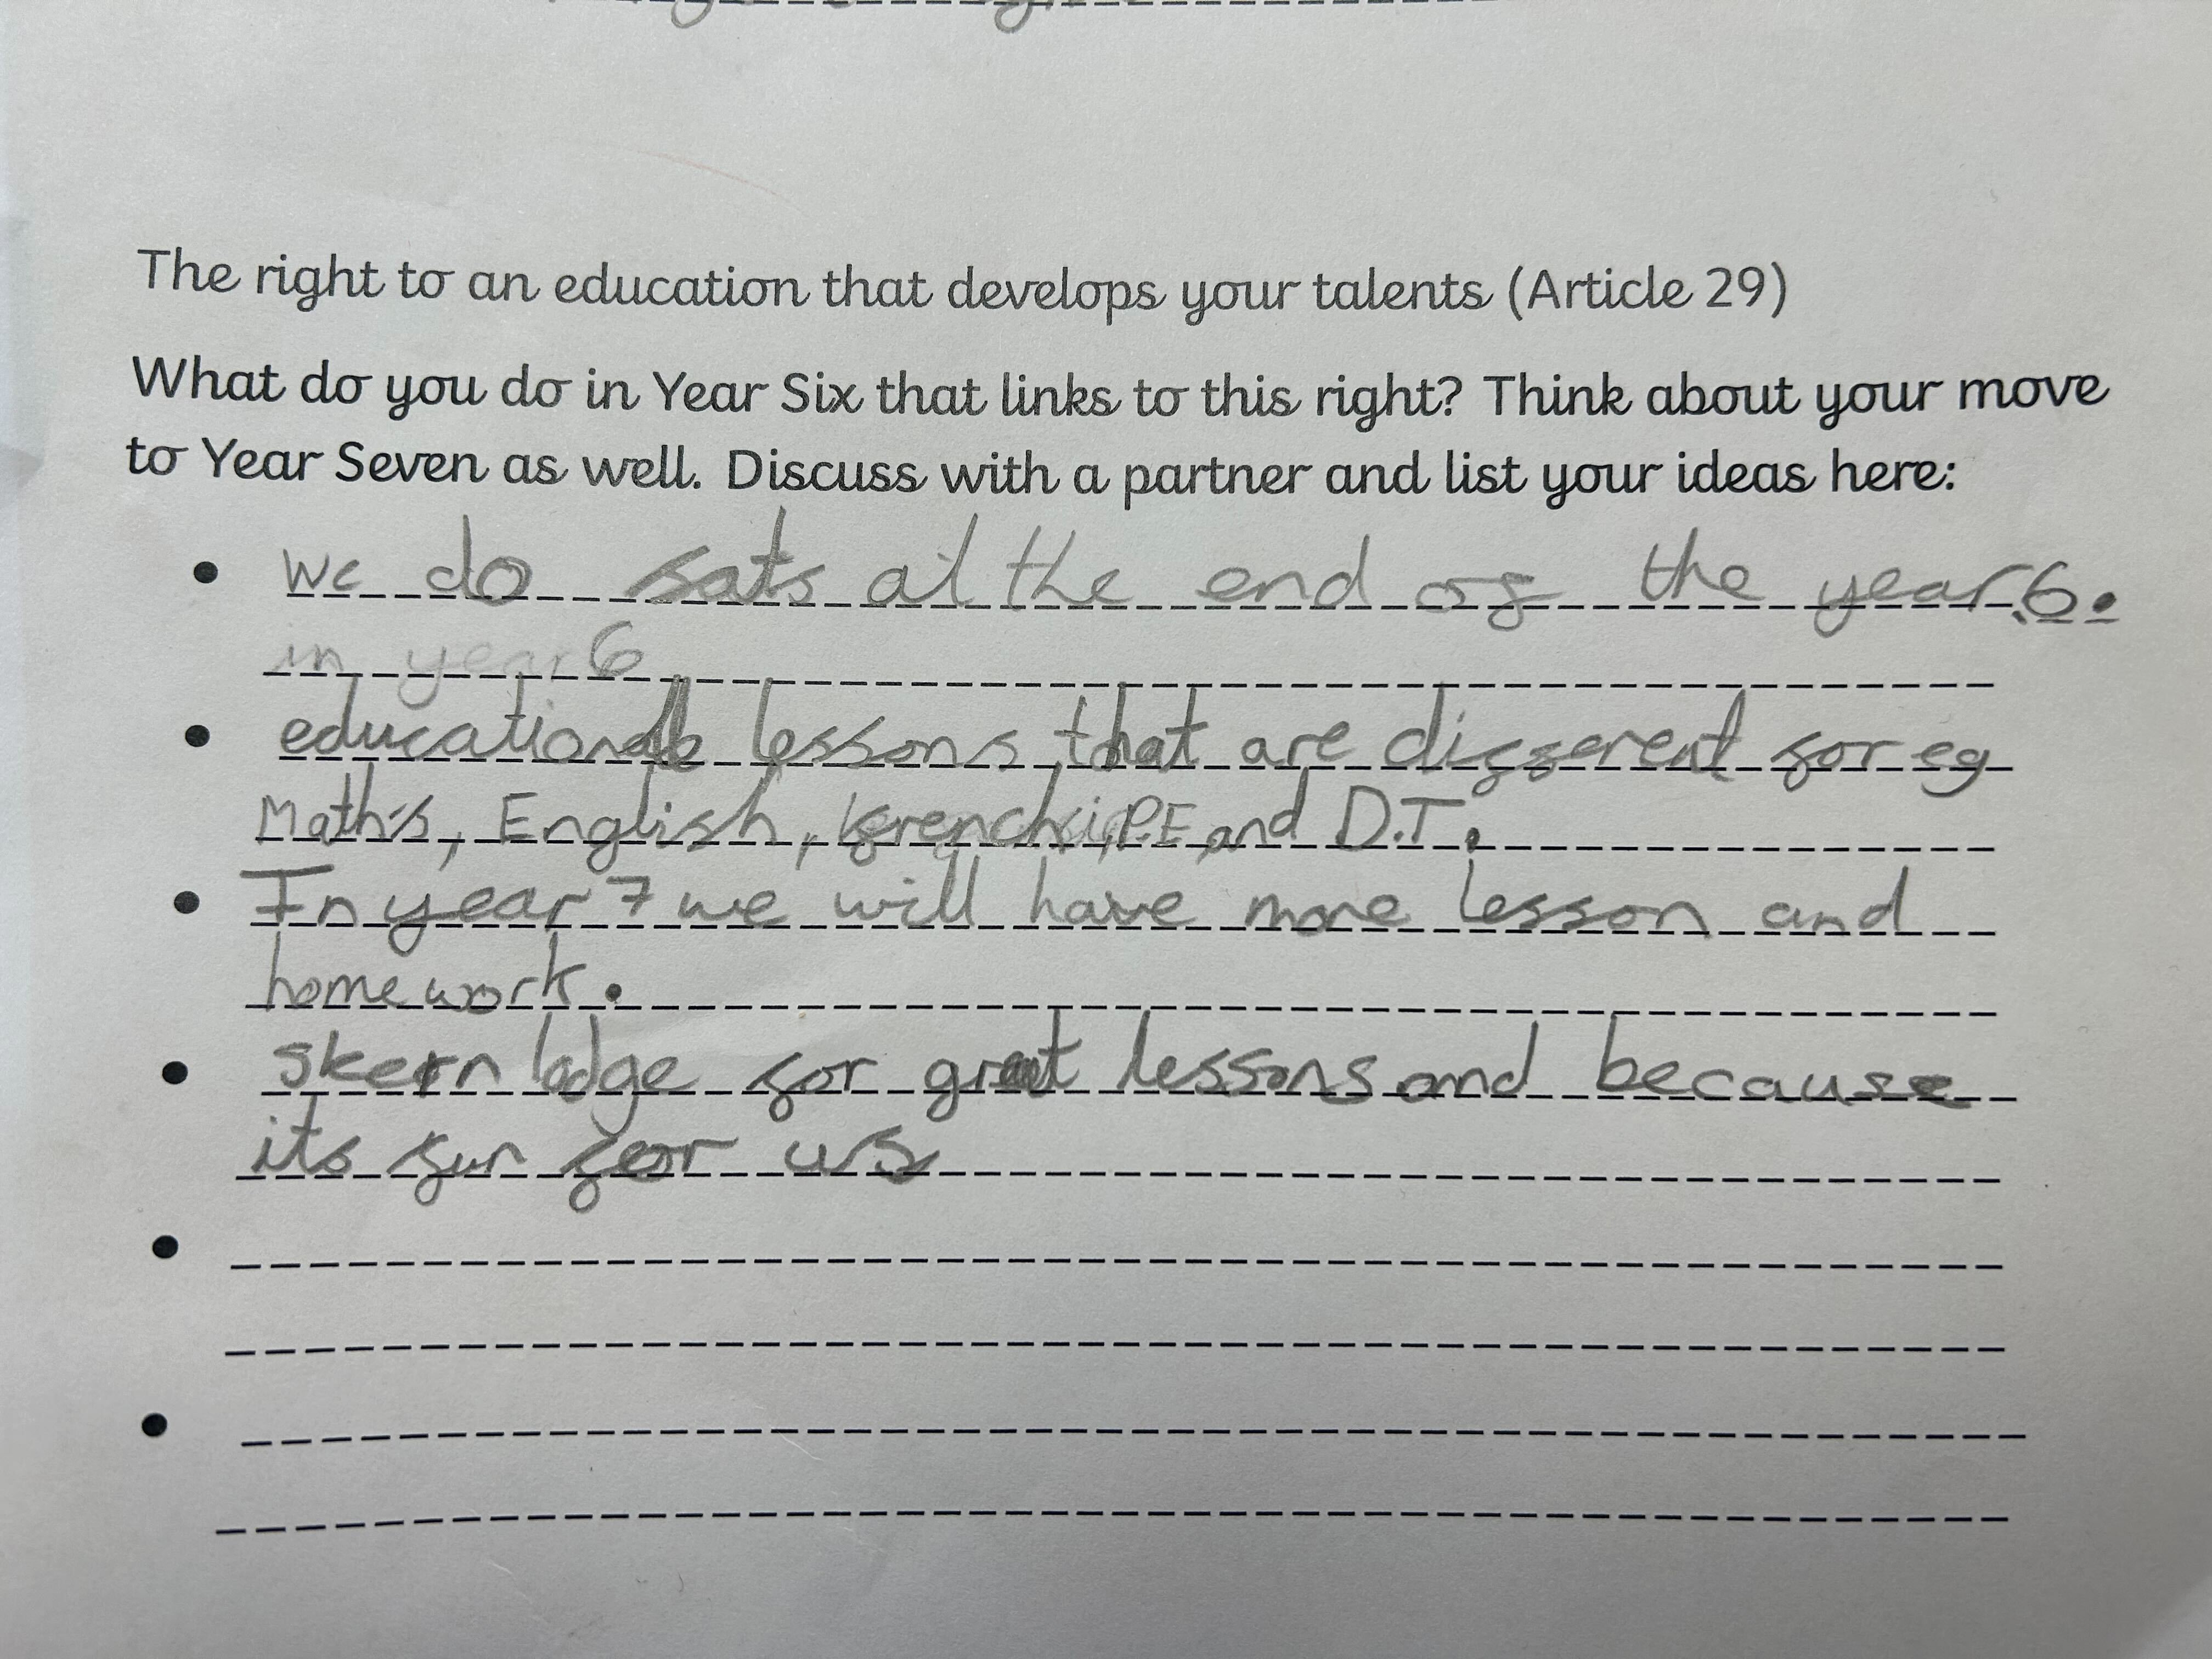 The right to an education that develops your talents (Article 29)
What do you do in Year Six that links to this right? Think about your move
to Year Seven as well. Discuss with a partner and list your ideas here:
• we do sats at the end of the year 6.
in year 6
• educational lessons that are different for eg
Math's, English, french, P.E and D.T.
• In year 7 we will have more lesson and
homework.
• skern lodge for great lessons and because
its fun for us
•
•